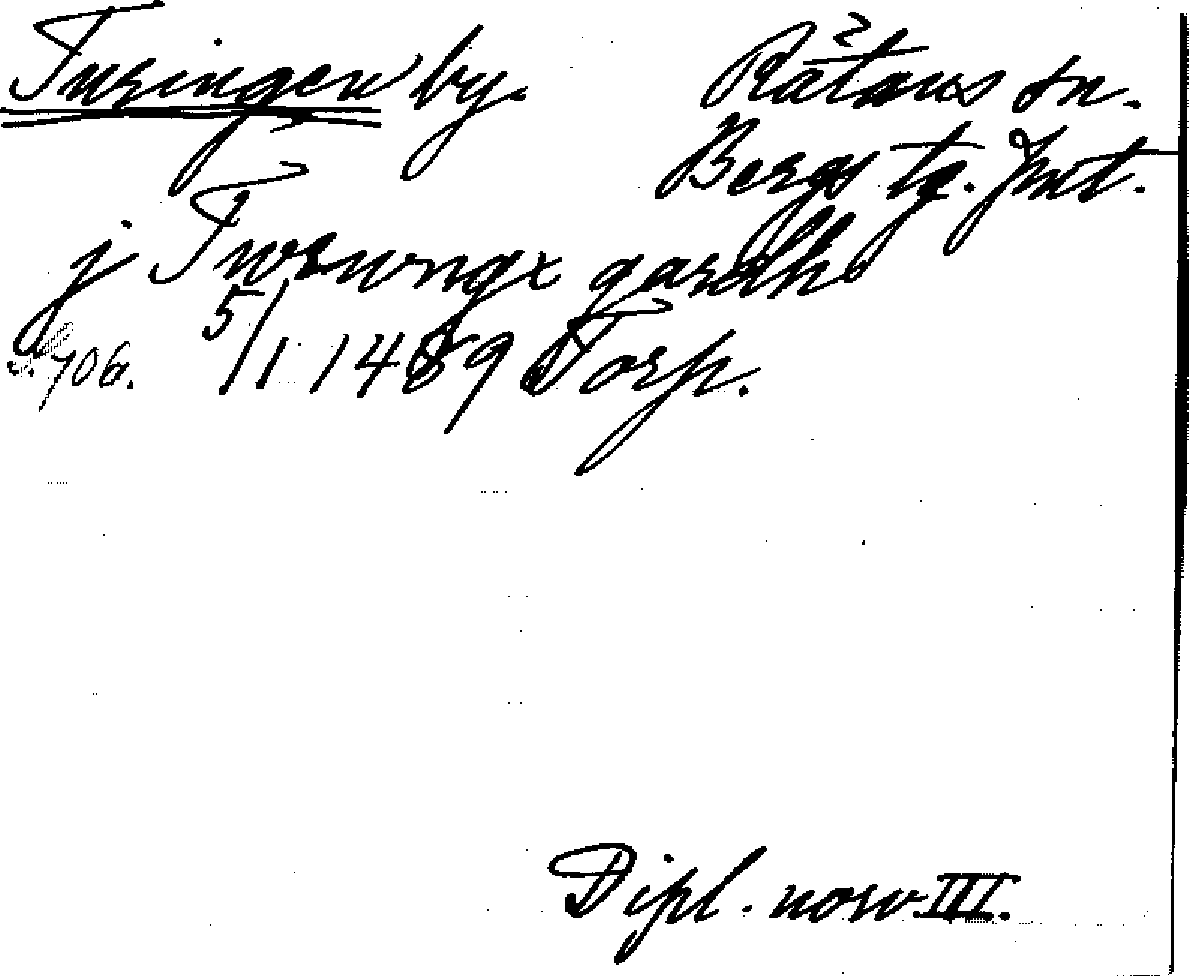 Turingen by. Rätans sn.
Bergs tg. Jmt.
j Twrungx gardh
s. 706. 5/1 1489 Torp.
Dipl. norv III.